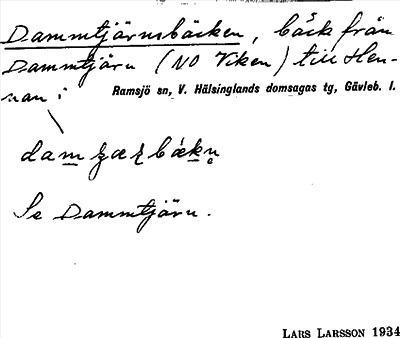 Dammtjärnsbäcken, bäck från
Dammtjärn (NO Viken) till Hen-
nan:
Ramsjö sn, V. Hälsinglands domsagas tg, Gävleb. l.
Se Dammtjärn.
LARS LARSSON 1934